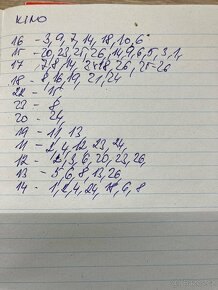 KINO
16 - 3, 9, 7, 14, 18, 10, 6
15 - 20, 23, 21, 26, 14, 9, 6, 5, 3, 1,
17 - 7, 8, 14, 18, 26, 25-26
18 - 8, 16, 19, 21, 24
22 - 15
23 - 8
20 - 24
19 - 11, 13
11 - 2, 4, 12, 23, 24,
12 - 3, 6, 20, 23, 26,
13 - 5, 6, 8, 13, 26
14 - 1, 2, 4, 24, 18, 6, 8